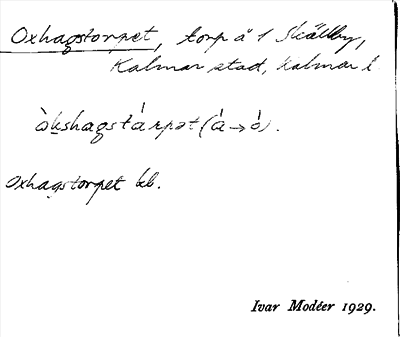 Oxhagstorpet, torp å 1 Skälby,
Kalmar stad, Kalmar l.
òkshagstárpet (á→ó).
Oxhagstorpet kb.
Ivar Modéer 1929.